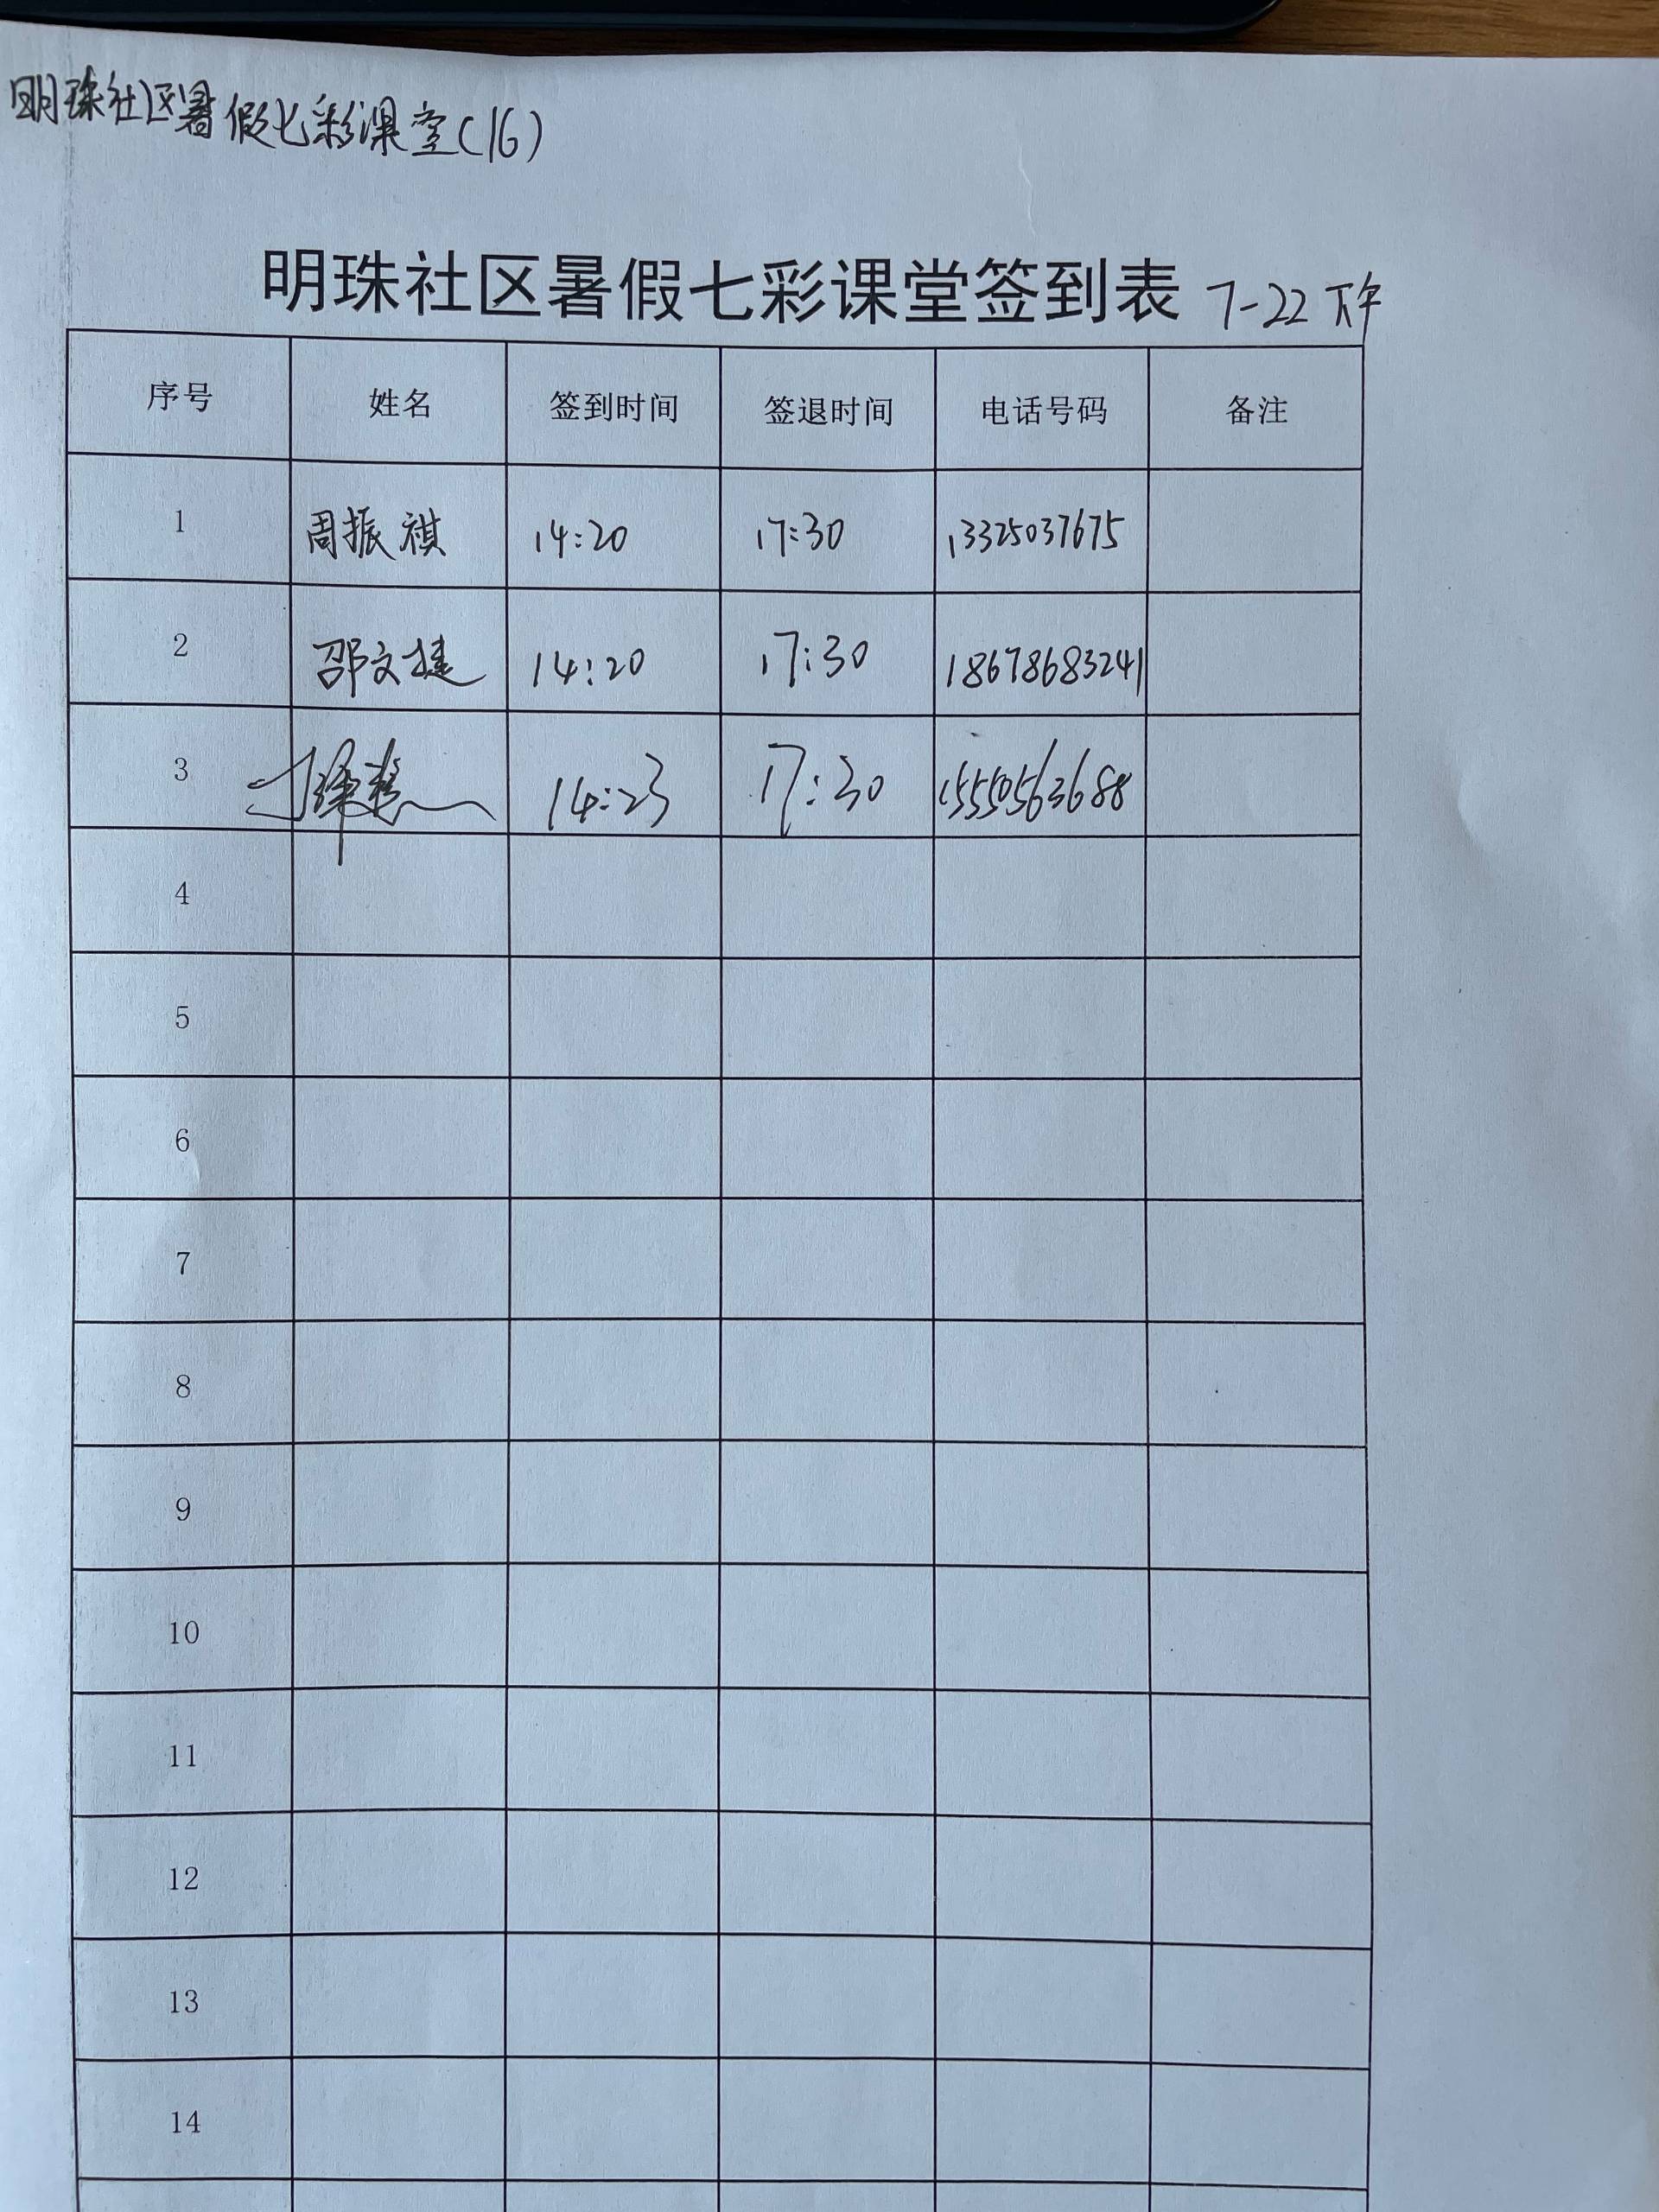 明珠社区暑假七彩课堂(16)
明珠社区暑假七彩课堂签到表 7-22 下午
序号 姓名 签到时间 签退时间 电话号码 备注
1 周振祺 14:20 17:30 13325037675
2 邵文捷 14:20 17:30 18678683241
3 14:23 17:30 15550563688
4
5
6
7
8
9
10
11
12
13
14